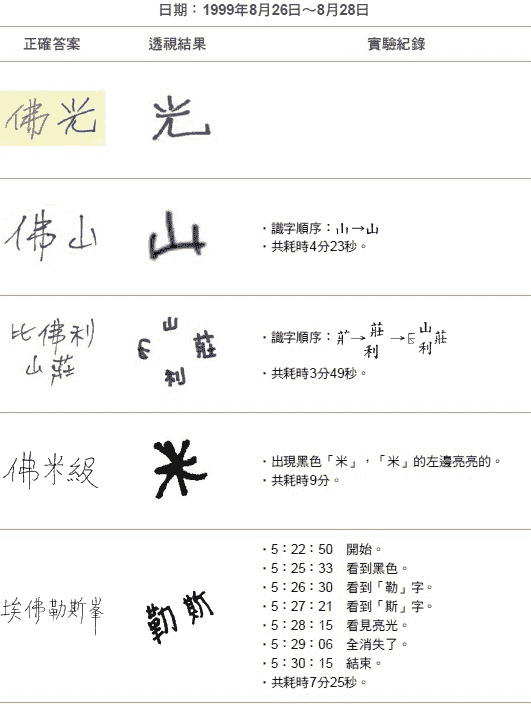 日期：1999年8月26日～8月28日
正確答案 透視結果 實驗紀錄
佛光 光
佛山 山
・識字順序：山→山
・共耗時4分23秒。
比佛利
山莊
山
莊
利
・識字順序：
莊
利
山
利
莊
・共耗時3分49秒。
佛米級 米
・出現黑色「米」，「米」的左邊亮亮的。
・共耗時9分。
埃佛勒斯峯 勒斯
・5：22：50 開始。
・5：25：33 看到黑色。
・5：26：30 看到「勒」字。
・5：27：21 看到「斯」字。
・5：28：15 看見亮光。
・5：29：06 全消失了。
・5：30：15 結束。
・共耗時7分25秒。